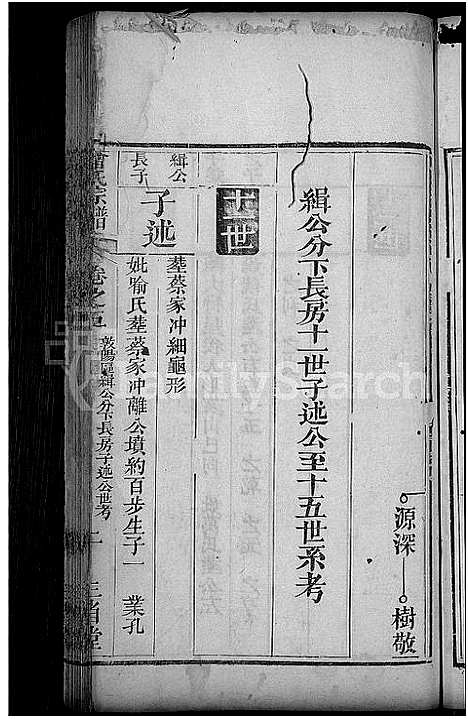 源深 樹敬
緝公分下長房十一世子述公至十五世系考
十一世
緝公
長子
子述
塟蔡家冲細龜形
妣喻氏塟蔡家冲離公墳約百步生子一 業孔
氏宗譜 卷之五 緝公分下長房子述公世考 二 三省堂
FamilySearch